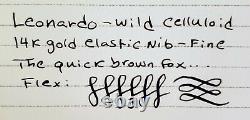 Leonardo - Wild Celluloid
14K gold elastic Nib - Fine
The quick brown fox...
Flex: